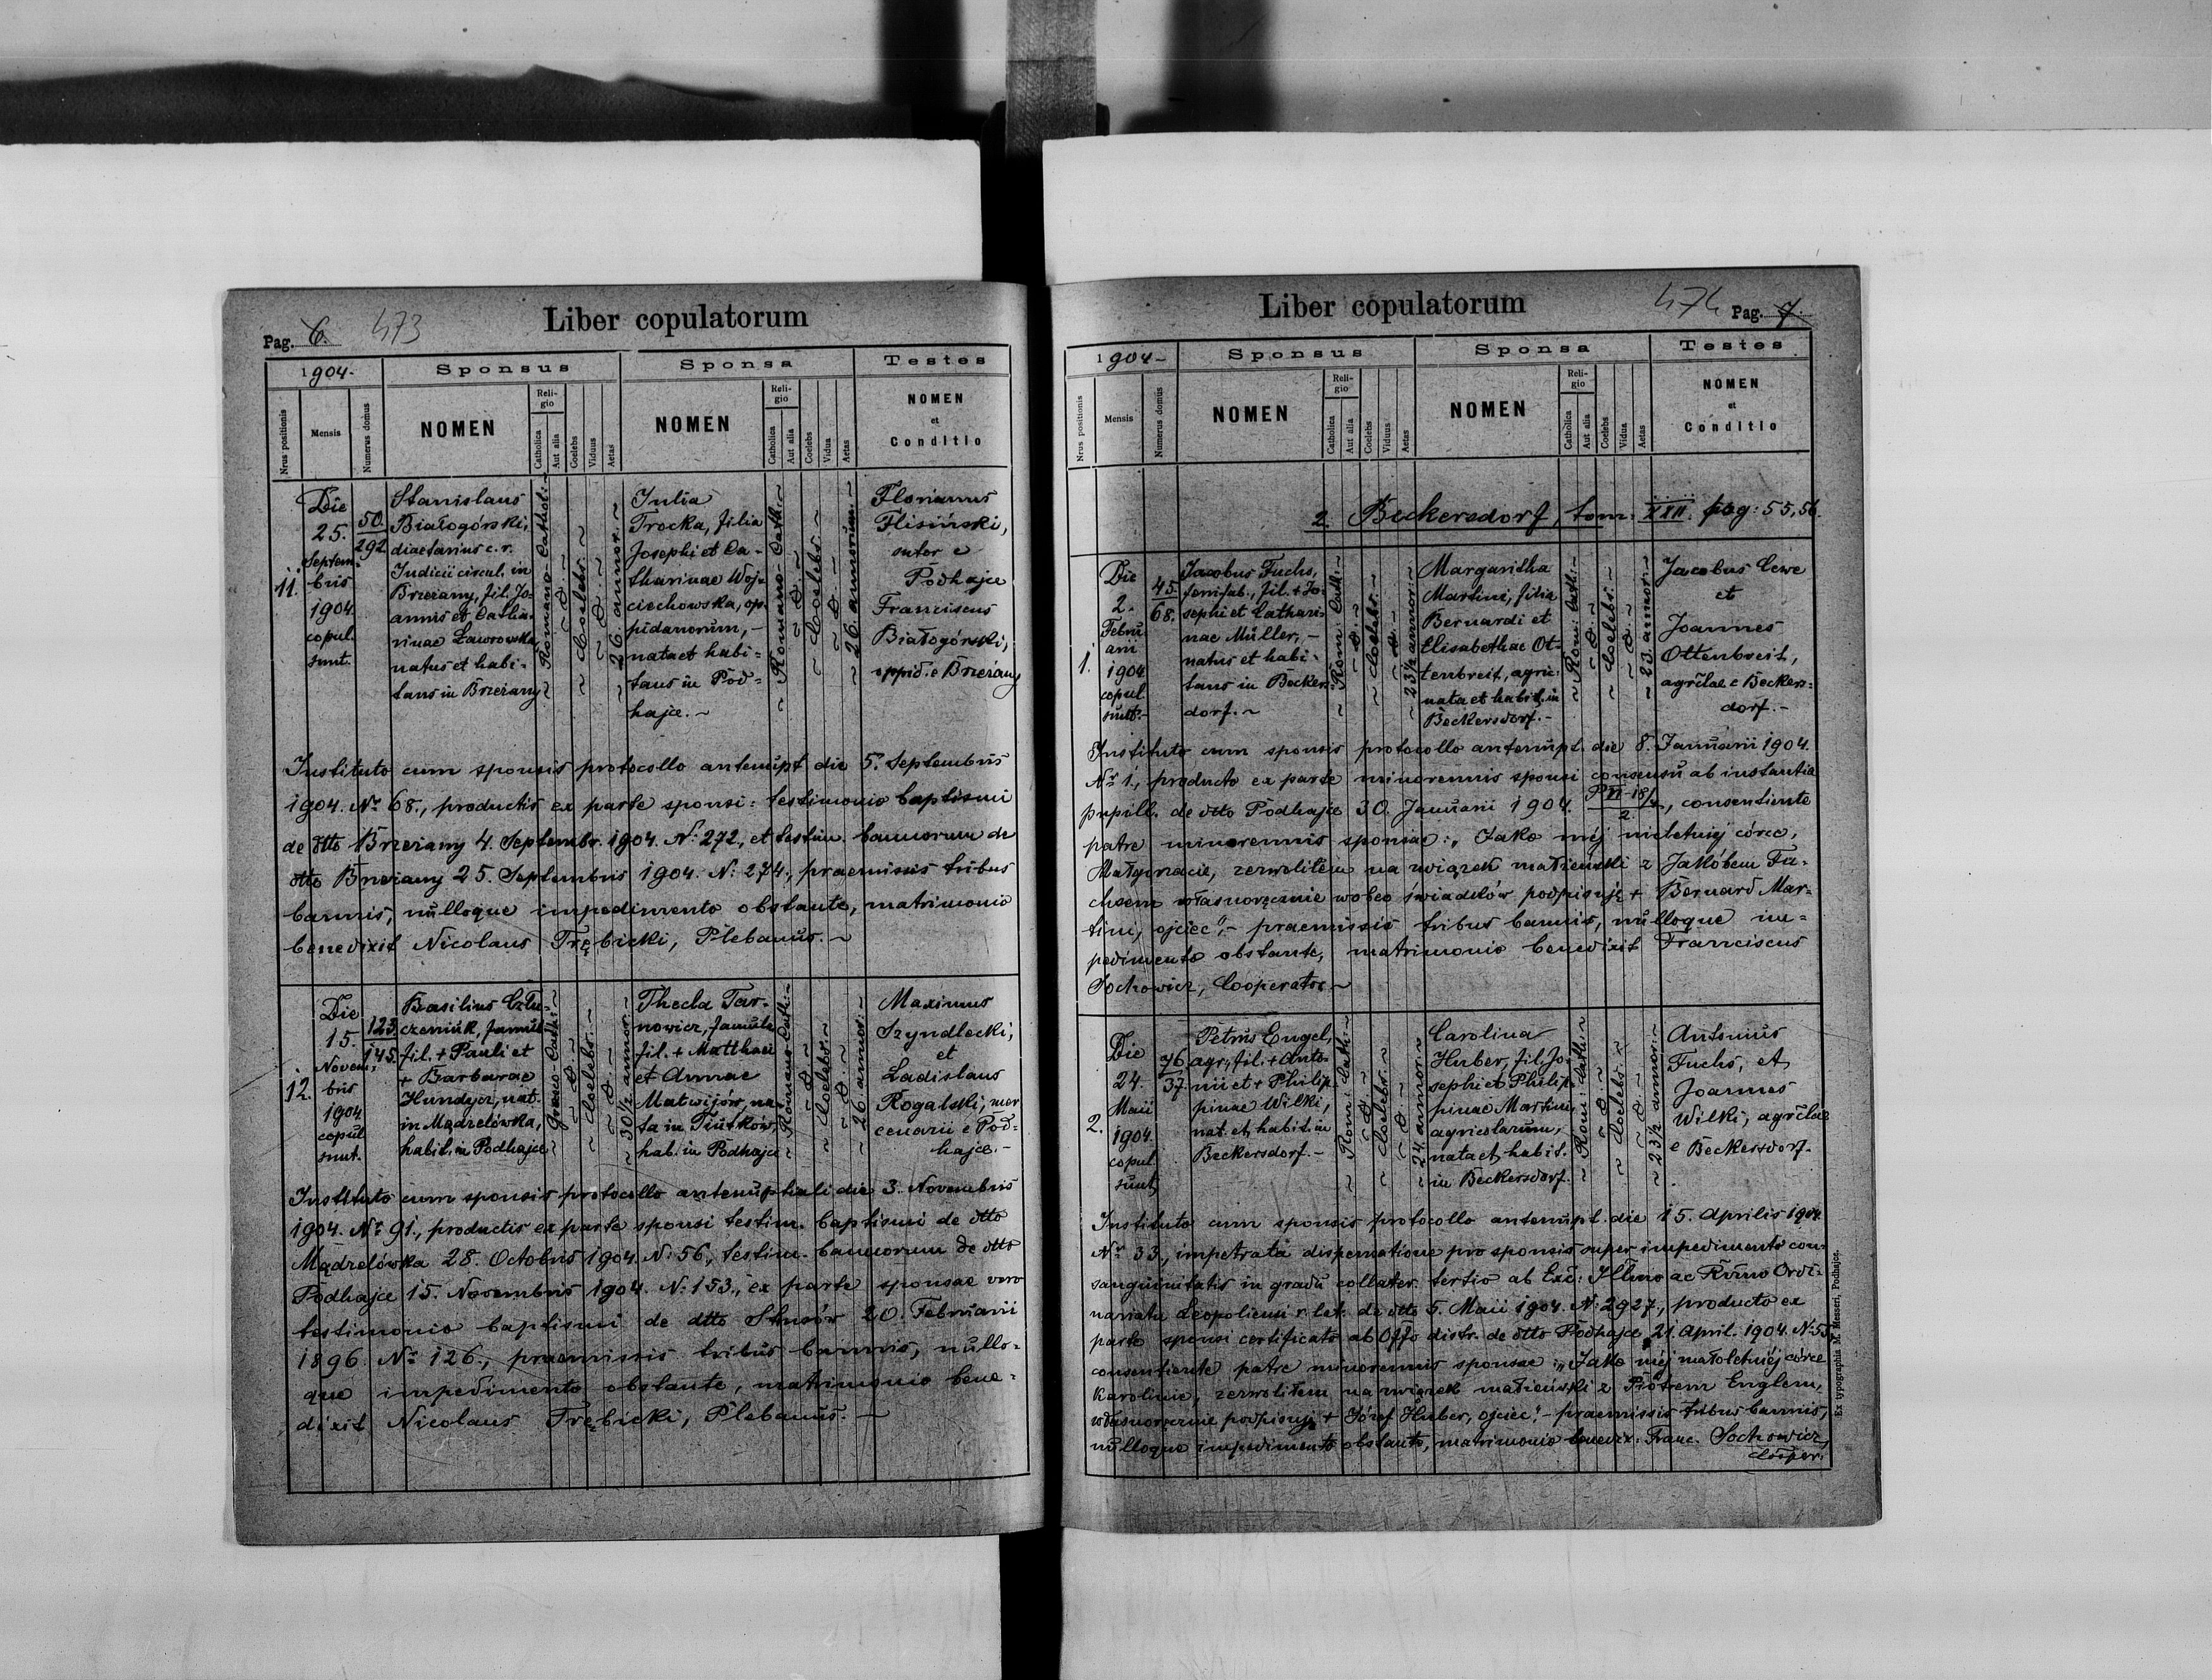 Pag. 6. 473
Liber copulatorum
1904.-
Sponsus
Sponsa
Testes
Nrus positionis
Mensis
Numerus domus
NOMEN
Religio
Catholica
Aut alia
Coelebs
Viduus
Aetas
NOMEN
Religio
Catholica
Aut alia
Coelebs
Vidua
Aetas
NOMEN
et
Conditio
11.
Die
25.
Septem-
bris
1904.
copul.
sunt.
50.
292
Stanislaus
Białogórski,
diaetarius c. r.
Judicii circul. in
Brzeżany, fil. Jo-
annis et Catha-
rinae Ławrowska,
natus et habi-
tans in Brzeżany
Romano-Cathol:
Coelebs.
26. annor.
Julia
Trocka, filia
Josephi et Ca-
tharinae Woj-
ciechowska, op-
pidanorum, -
nata et habi-
tans in Pod-
hajce. ~
Romano-Cath.
Coelebs.
26. annorum.
Florianus
Flisiński,
sutor e
Podhajce
Franciscus
Białogórski,
oppid. e Brzeżany
Instituto cum sponsis protocollo antenupt. die 5. Septembris
1904. Nr. 68., productis ex parte sponsi: testimonio baptismi
de dtto Brzeżany 4. Septembr. 1904. N: 272., et testim. bannorum de
dtto Brzeżany 25. Septembris 1904. N: 274., praemissis tribus
bannis, nulloque impedimento obstante, matrimonio
benedixit Nicolaus Trębicki, Plebanus. ~
12.
Die
15.
Novem-
bris
1904
copul.
sunt.
123.
145.
Basilius
fil. + Pauli et
+ Barbarae
Hundycz, nat.
in Mądzelówka,
habit. in Podhajce
Graeco-Cath:
Coelebs.
30½ annor.
Thecla Tar-
nowicz, famula
fil. + Matthaei
et Annae
Matwijów, na-
ta in
hab. in Podhajce
Romano-Cath:
Coelebs.
26. annor.
Maximus
Szyndlecki,
et
Ladislaus
Rogalski, mer-
cenarii e Pod-
hajce. -
Instituto cum sponsis protocollo antenuptiali die 3. Novembris
1904. Nr 91., productis ex parte sponsi testim. baptismi de dtto
Mądzelówka 28. Octobris 1904. N: 56., testim. bannorum de dtto
Podhajce 15. Novembris 1904. N: 153., ex parte sponsae vero
testimonio baptismi de dtto 20. Februarii
1896. Nr 126., praemissis tribus bannis, nullo-
que impedimento obstante, matrimonio bene-
dixit Nicolaus Trębicki, Plebanus. -
Liber copulatorum
474 Pag. 7.
1904-
Sponsus
Sponsa
Testes
Nrus positionis
Mensis
Numerus domus
NOMEN
Religio
Catholica
Aut alia
Coelebs
Viduus
Aetas
NOMEN
Religio
Catholica
Aut alia
Coelebs
Vidua
Aetas
NOMEN
et
Conditio
2. Beckersdorf, tom. XXII. pag: 55, 56.
1.
Die
2.
Febru-
arii
1904
copul.
sunt.-
45.
68.
Jacobus Fuchs,
ferrifab., fil. + Jo-
sephi et Cathari-
nae Müller, -
natus et habi-
tans in Beckers-
dorf. ~
Rom: Cath:
Coelebs.
23½ annor:
Margaritha
Martini, filia
Bernardi et
Elisabethae Ot-
tenbreit, agric:
nata et habit. in
Beckersdorf. -
Rom: Cath:
Coelebs.
23. annor:
Jacobus Lewe
et
Joannes
Ottenbreit,
agrīlae e Beckers-
dorf. -
Instituto cum sponsis protocollo antenupt. die 8. Januarii 1904.
Nr 1., producto ex parte minorennis sponsi consensu ab instantia
pupill. de dtto Podhajce 30. Januarii 1904. P VI-18/4 2., consentiente
patre minorennis sponsae: „Jako mej nieletniej córce,
Małgorzacie, zezwoliłem na związek małżeński z Jakóbem Fu-
chsem własnoręcznie wobec świadków podpisuję + Bernard Mar-
tini, ojciec", - praemissis tribus bannis, nulloque im-
pedimento obstante, matrimonio benedixit Franciscus
Sochowicz, Cooperator ~
2.
Die
24.
Maii
1904.
copul.
sunt
76
37.
Petrus Engel,
agr., fil. + Anto-
nii et + Philip-
pinae Wilki,
nat. et habit. in
Beckersdorf. -
Rom: Cath:
Coelebs.
24. annor:
Carolina
Huber, fil. Jo-
sephi et Philip-
pinae Martini,
agricolarum,
nata et habit.
in Beckersdorf.
Rom: Cath:
Coelebs.
23½ annor:
Antonius
Fuchs, et
Joannes
Wilki, agrīlae
e Beckersdorf.
Instituto cum sponsis protocollo antenupt. die 15. Aprilis 1904.
Nr 33., impetrata dispensatione pro sponsis super impedimento con-
sanguinitatis in gradu collater. tertio ab Exc: Illmo ac Rvmo Ordi-
nariatu Leopoliensi r. lat. de dtto 5. Maii 1904. N: 2927., producto ex
parte sponsi certificato ab Offo distr. de dtto Podhajce 21. April. 1904. N: 55.
consentiente patre minorennis sponsae: „Jako mej małoletniej córce
Karolinie, zezwoliłem na związek małżeński z Piotrem Englem,
własnoręcznie podpisuję + Józef Huber, ojciec", - praemissis tribus bannis,
nulloque impedimento obstante, matrimonio benedix. Franc. Sochowicz,
Cooper.
Ex typographia M. Messeri, Podhajce.